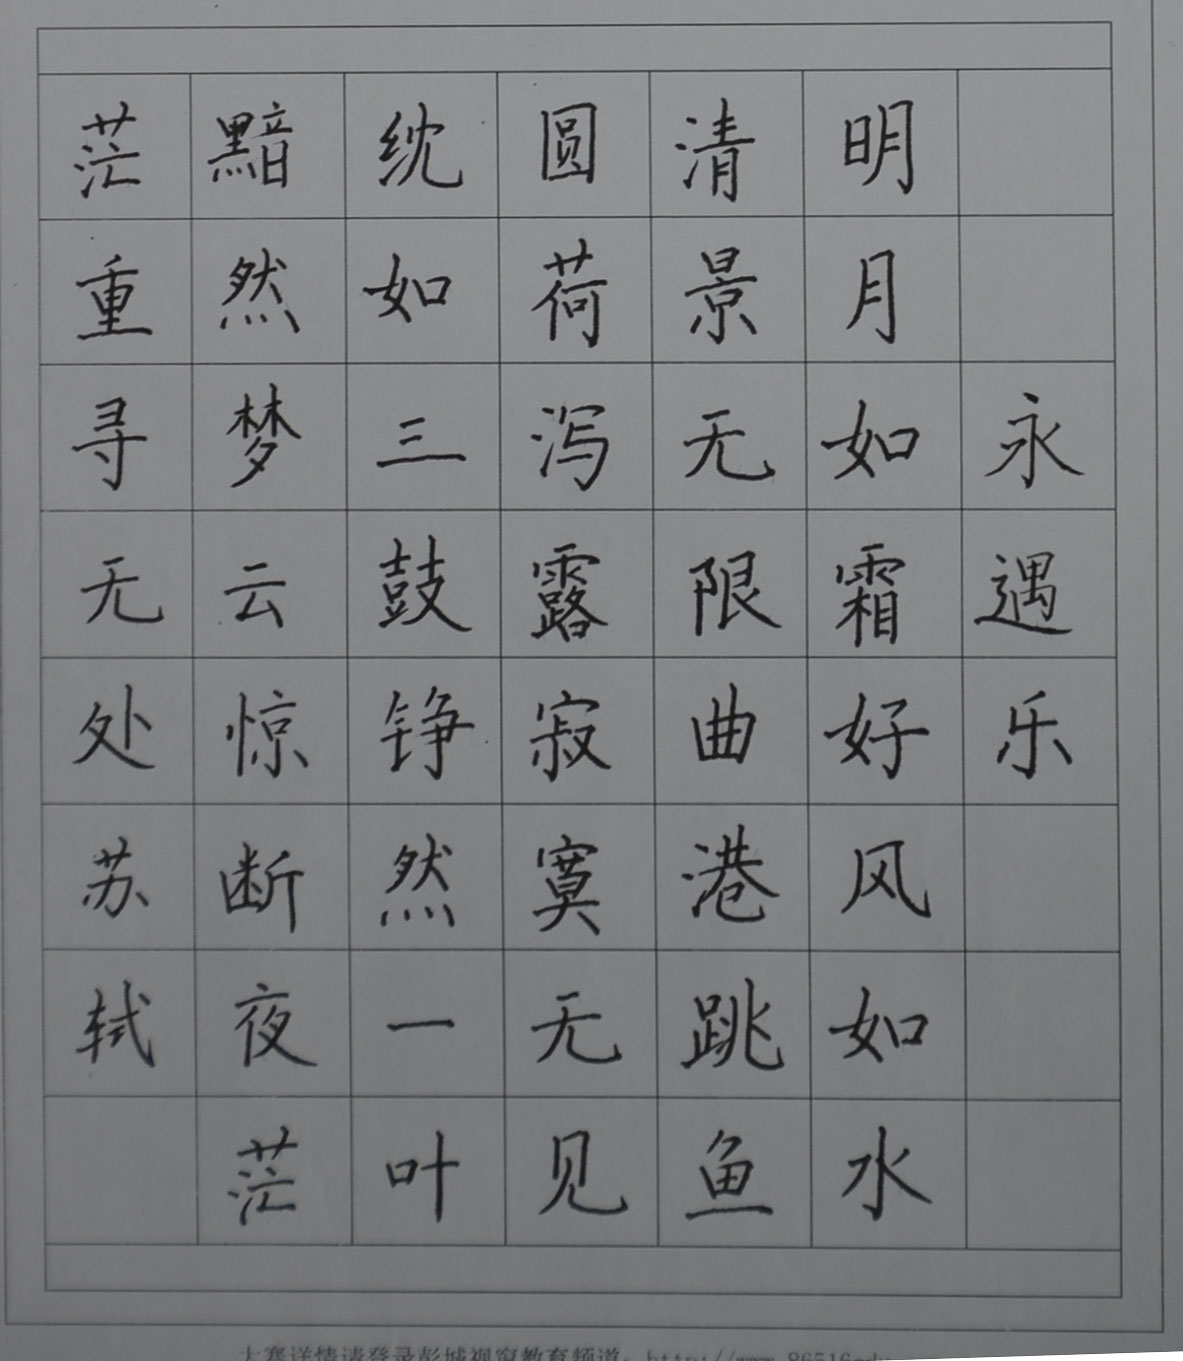 永遇乐
明月如霜好风如水
清景无限曲港跳鱼
圆荷泻露寂寞无见
纨如三鼓铮然一叶
黯然梦云惊断夜茫
茫重寻无处苏轼
大赛详情请登录彭城视窗教育频道：http://www.86516edu